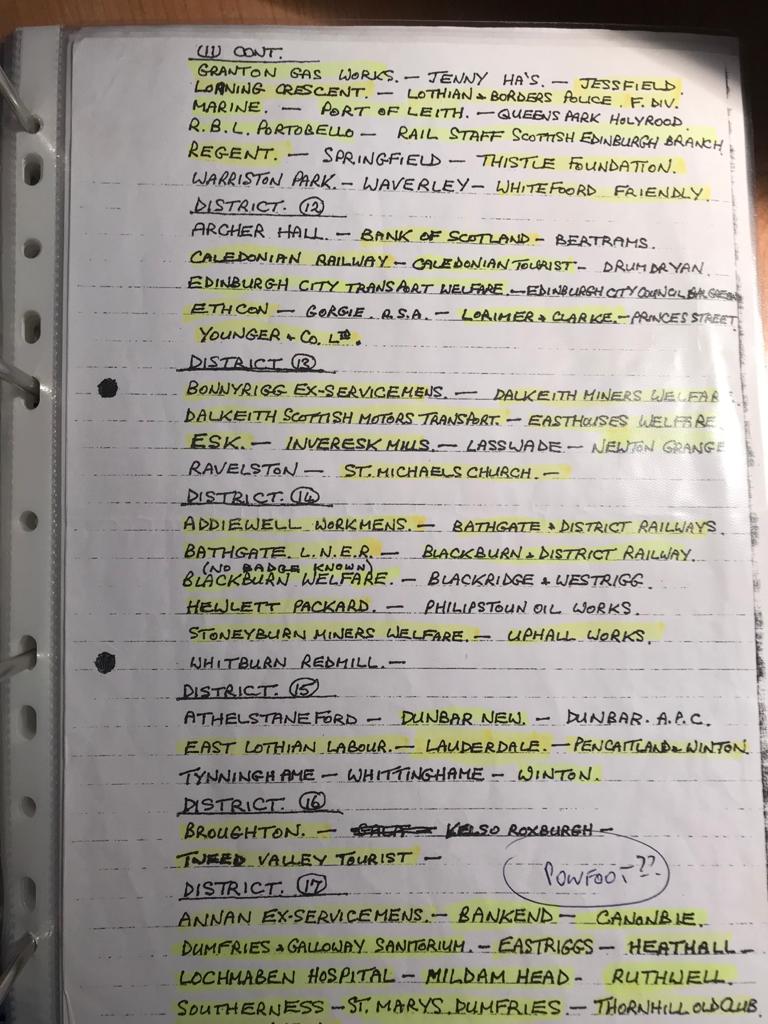 (11) CONT.
GRANTON GAS WORKS. — JENNY HA'S. — JESSFIELD.
LORNING CRESCENT. — LOTHIAN & BORDERS POLICE. F. DIV.
MARINE. — PORT OF LEITH. — QUEENS PARK HOLYROOD.
R.B.L. PORTOBELLO — RAIL STAFF SCOTTISH EDINBURGH BRANCH
REGENT. — SPRINGFIELD — THISTLE FOUNDATION.
WARRISTON PARK. — WAVERLEY — WHITEFOORD FRIENDLY.
DISTRICT. (12)
ARCHER HALL. — BANK OF SCOTLAND — BERTRAMS.
CALEDONIAN RAILWAY — CALEDONIAN TOURIST — DRUMDRYAN.
EDINBURGH CITY TRANSPORT WELFARE. — EDINBURGH CITY COUNCIL
ETHCON — GORGIE. R.S.A. — LORIMER & CLARKE. — PRINCES STREET.
YOUNGER & CO. LTD.
DISTRICT (13)
BONNYRIGG EX-SERVICEMENS. — DALKEITH MINERS WELFARE
DALKEITH SCOTTISH MOTORS TRANSPORT. — EASTHOUSES WELFARE.
ESK. — INVERESK MILLS. — LASSWADE — NEWTON GRANGE
RAVELSTON — ST. MICHAELS CHURCH. —
DISTRICT. (14)
ADDIEWELL WORKMENS. — BATHGATE & DISTRICT RAILWAYS.
BATHGATE. L.N.E.R. — BLACKBURN & DISTRICT RAILWAY.
(NO BADGE KNOWN)
BLACKBURN WELFARE. — BLACKRIDGE & WESTRIGG.
HEWLETT PACKARD. — PHILIPSTOUN OIL WORKS.
STONEYBURN MINERS WELFARE. — UPHALL WORKS.
WHITBURN REDMILL. —
DISTRICT. (15)
ATHELSTANEFORD — DUNBAR NEW. — DUNBAR. A.P.C.
EAST LOTHIAN LABOUR. — LAUDERDALE. — PENCAITLAND & WINTON.
TYNNINGHAME — WHITTINGHAME — WINTON.
DISTRICT. (16)
BROUGHTON. — KELSO ROXBURGH —
TWEED VALLEY TOURIST —
POWFOOT ??
DISTRICT. (17)
ANNAN EX-SERVICEMENS. — BANKEND — CANONBIE.
DUMFRIES & GALLOWAY SANITORIUM. — EASTRIGGS — HEATHALL —
LOCHMABEN HOSPITAL — MILDAM HEAD - RUTHWELL.
SOUTHERNESS — ST. MARYS. DUMFRIES. — THORNHILL OLD CLUB.